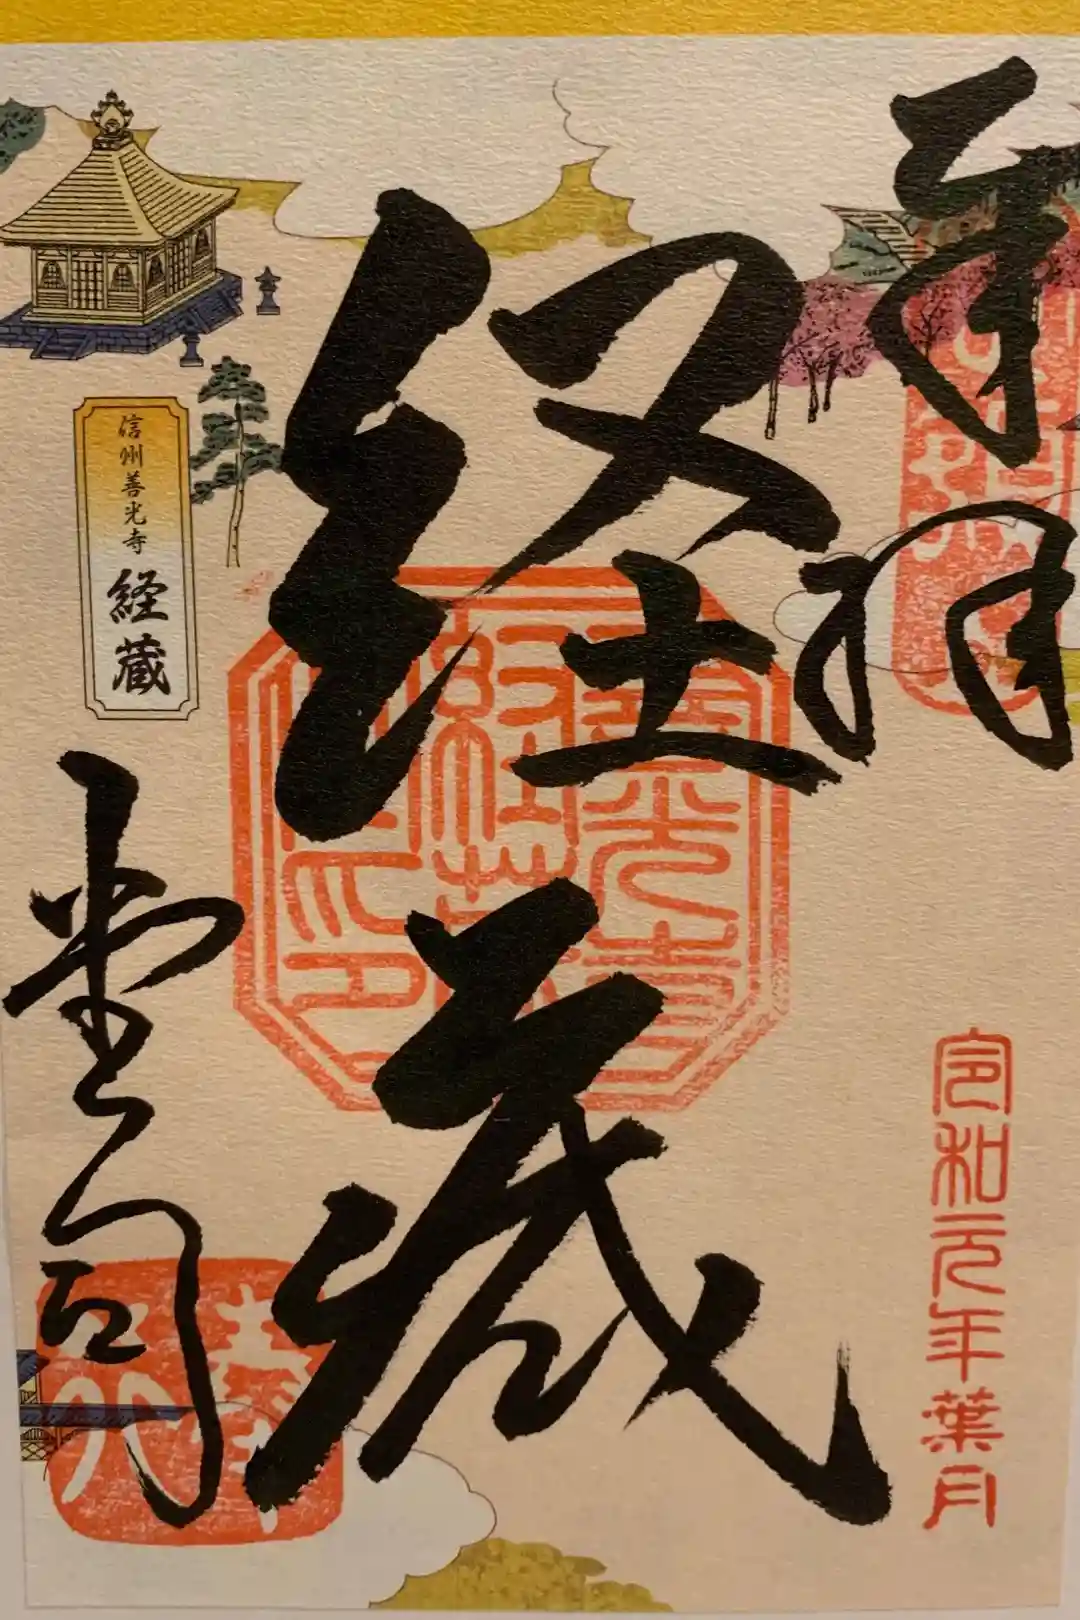 奉拝
経蔵
堂司
信州善光寺
経蔵
善光寺
経蔵
令和元年葉月